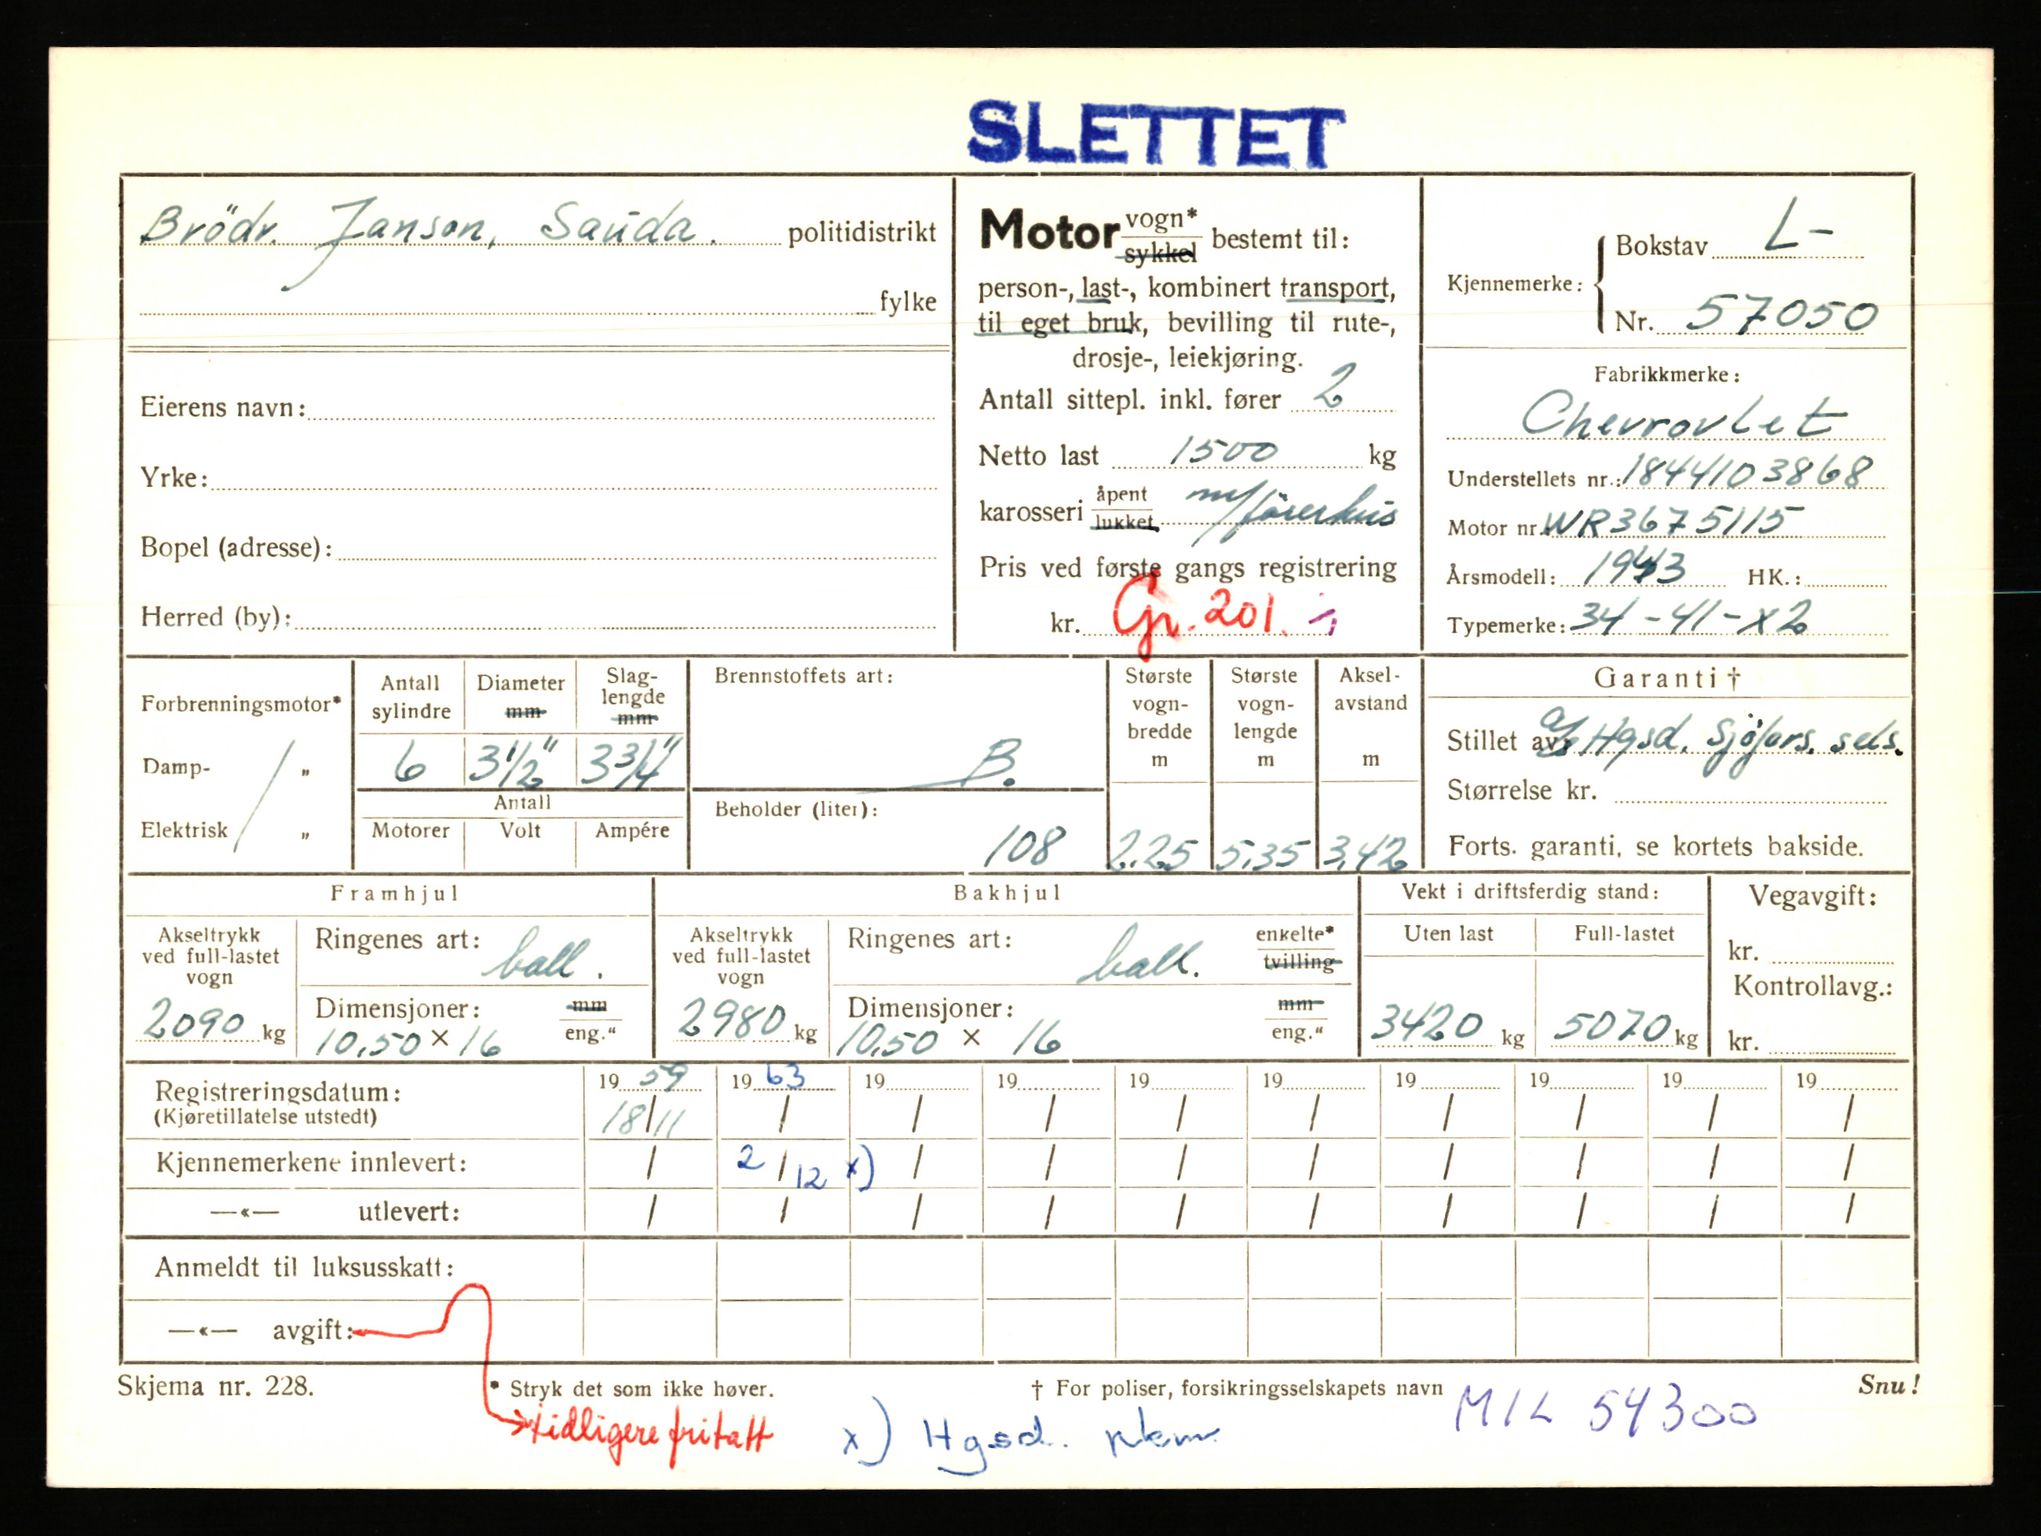 SLETTET
Brödr. Janson, Sauda. politidistrikt
fylke
Eierens navn:
Yrke:
Bopel (adresse):
Herred (by):
Motor vogn* sykkel bestemt til:
person-, last-, kombinert transport,
til eget bruk, bevilling til rute-,
drosje-, leiekjøring.
Antall sittepl. inkl. fører 2
Netto last 1500 kg
karosseri åpent lukket m/förerhus
Pris ved første gangs registrering
kr. Gr. 201.
Kjennemerke: Bokstav L-
Nr. 57050
Fabrikkmerke:
Chevrovlet
Understellets nr.: 1844103868
Motor nr. WR3675115
Årsmodell: 1943 HK.:
Typemerke: 34-41-X2
Forbrenningsmotor*
Damp- „
Elektrisk „
Antall sylindre
Diameter mm
Slag-lengde mm
6 3½" 3¾"
Antall
Motorer Volt Ampére
Brennstoffets art:
B.
Beholder (liter):
108
Største vogn-bredde m
2.25
Største vogn-lengde m
5.35
Aksel-avstand m
3.42
Garanti †
Stillet av: Hgsd. Sjöfors. sels.
Størrelse kr.
Forts. garanti, se kortets bakside.
Framhjul
Akseltrykk ved full-lastet vogn
2090 kg
Ringenes art: ball.
Dimensjoner: mm
10.50 × 16 eng."
Bakhjul
Akseltrykk ved full-lastet vogn
2980 kg
Ringenes art: ball. enkelte* tvilling
Dimensjoner: mm
10.50 × 16 eng."
Vekt i driftsferdig stand:
Uten last Full-lastet
3420 kg 5070 kg
Vegavgift:
kr.
Kontrollavg.:
kr.
Registreringsdatum: 19 59 19 63 19 19 19 19 19 19 19 19
(Kjøretillatelse utstedt) 18/11 / / / / / / / / /
Kjennemerkene innlevert: / 2/12 x) / / / / / / / /
—«— utlevert: / / / / / / / / / /
Anmeldt til luksusskatt:
—«— avgift:
Skjema nr. 228.
* Stryk det som ikke høver.
† For poliser, forsikringsselskapets navn
Snu!
tidligere fritatt
x) Hgsd.
MIL 54300